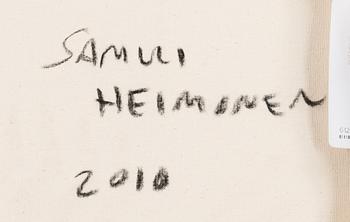 SAMULI
HEIMONEN
2010